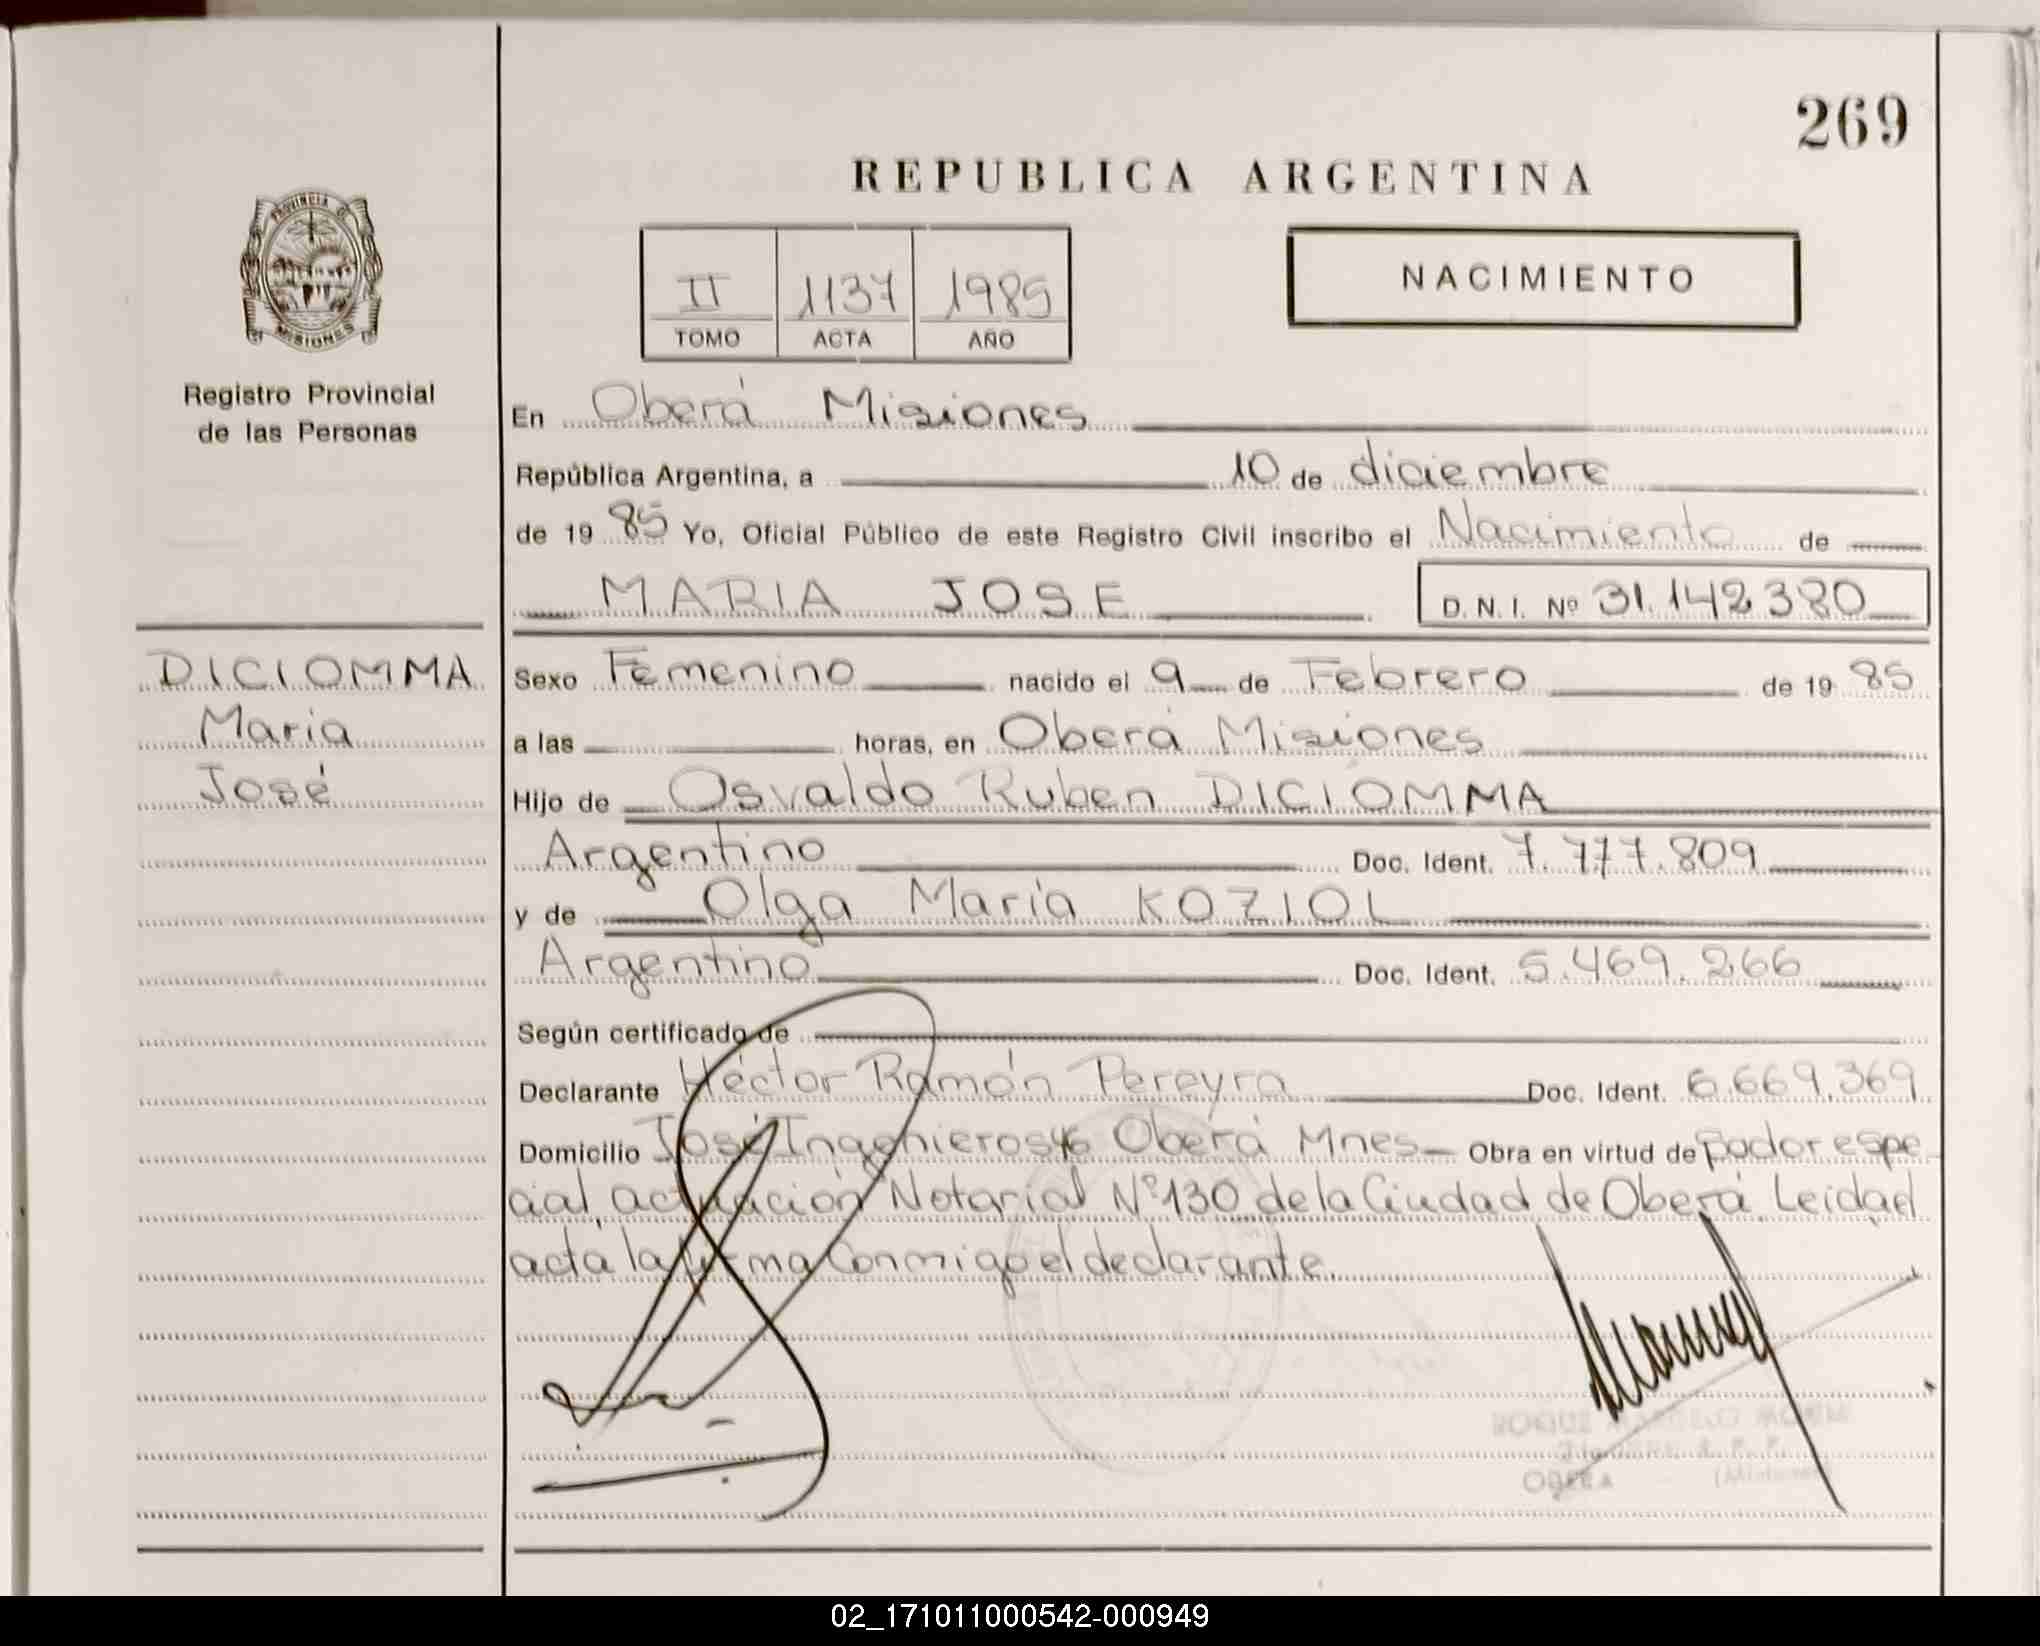 269
REPUBLICA ARGENTINA
PROVINCIA DE
MISIONES
Registro Provincial
de las Personas
II 1137 1985
TOMO ACTA AÑO
NACIMIENTO
En Oberá Misiones
República Argentina, a 10 de diciembre
de 19 85 Yo, Oficial Público de este Registro Civil inscribo el Nacimiento de
MARIA JOSE D.N.I. Nº 31.142380
DICIOMMA
Maria
José
Sexo Femenino nacido el 9 de Febrero de 19 85
a las horas, en Oberá Misiones
Hijo de Osvaldo Ruben DICIOMMA
Argentino Doc. Ident. 7.777.809
y de Olga María KOZIOL
Argentino Doc. Ident. 5.469.266
Según certificado de
Declarante Héctor Ramón Pereyra Doc. Ident. 6.669.369
Domicilio José Ingenieros 46 Oberá Mnes Obra en virtud de podor espe
cial, actuación Notarial Nº130 de la Ciudad de Oberá. Leida el
acta la firma Conmigo el declarante.
ROQUE
OBERA (Misiones)
02_171011000542-000949